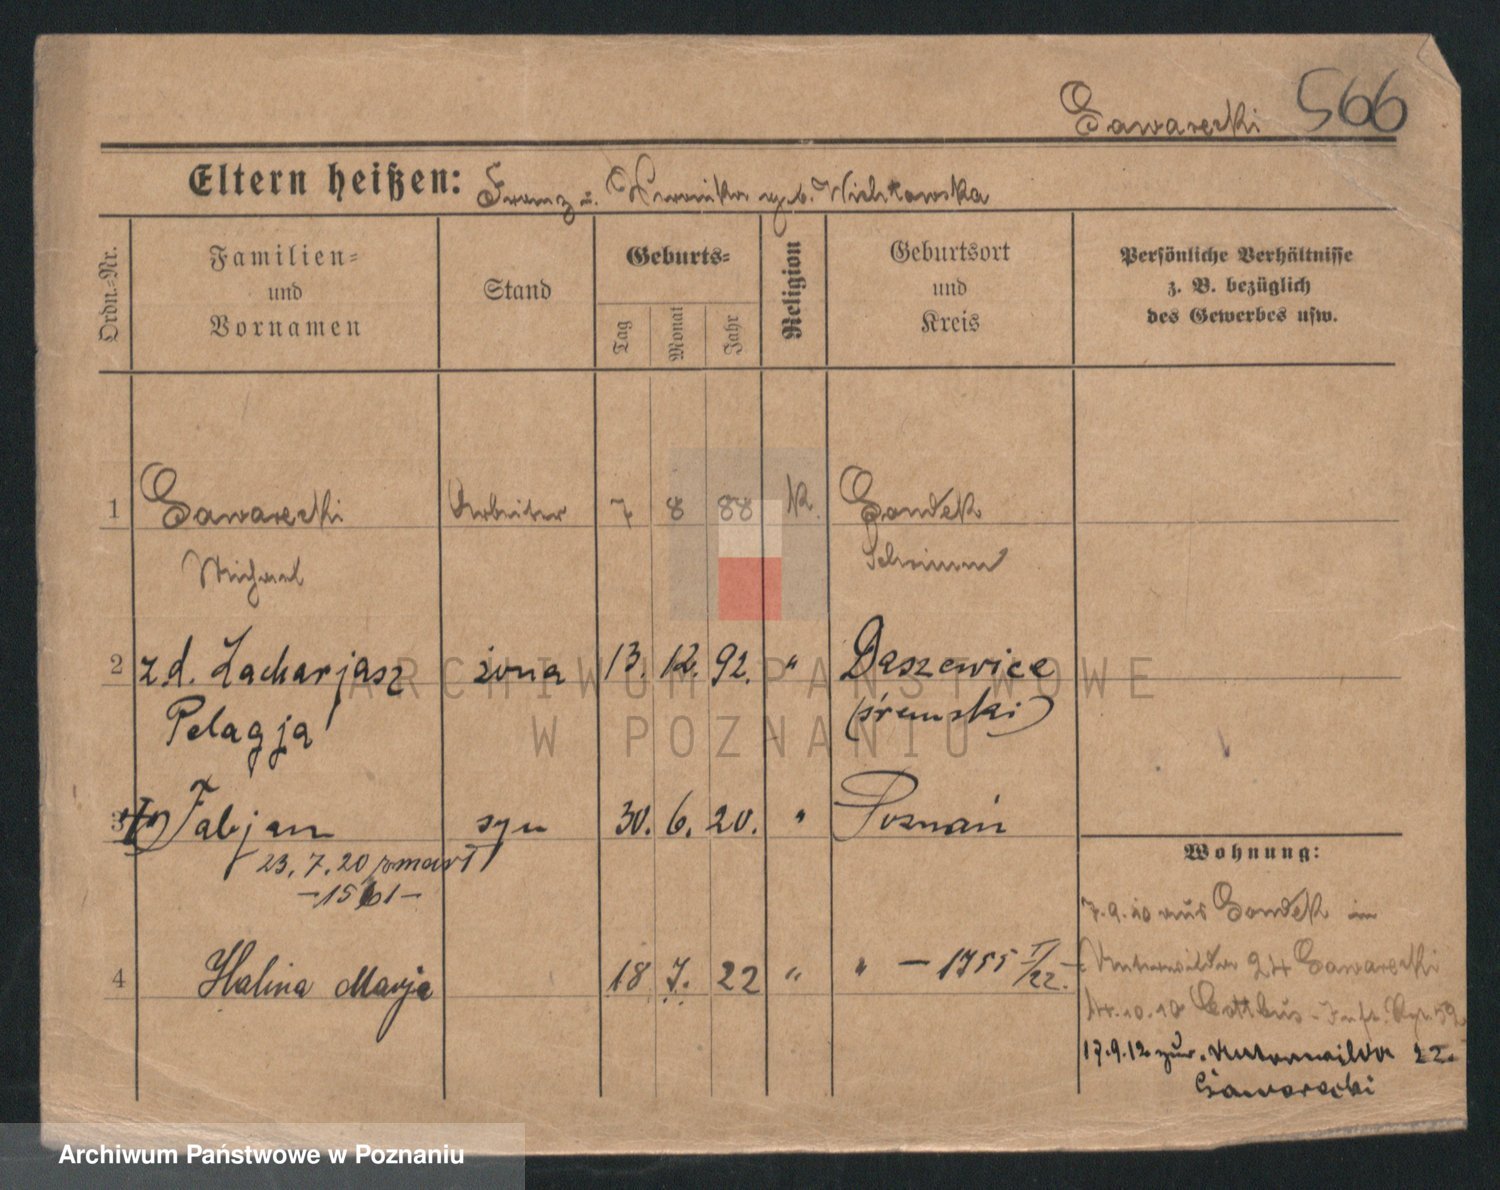 Gawarecki 566
Eltern heißen: Franz u. Veronika geb.
Ordn.-Nr.
Familien-
und
Vornamen
Stand
Geburts-
Tag
Monat
Jahr
Religion
Geburtsort
und
Kreis
Persönliche Verhältnisse
z. B. bezüglich
des Gewerbes usw.
1 Gawarecki Arbeiter 7 8 88 K. Gondek
Michael Schrimm
2 z d. Zacharjasz żona 13. 12. 92. " Daszewice
Pelagja (śremski)
3 Fabjan syn 30. 6. 20. " Poznań
23. 7. 20 zmarł
-1561-
4 Halina Marja 18 7. 22 " " - 1755 I/22.-
Wohnung:
7.9.10 aus Gondek in
Unterwilda 24 Gawarecki
14.10.10 Cottbus - Inft. Rgt 52
17.9.12 zur. Unterwilda 22.
Gawarecki
ARCHIWUM PAŃSTWOWE
W POZNANIU
Archiwum Państwowe w Poznaniu